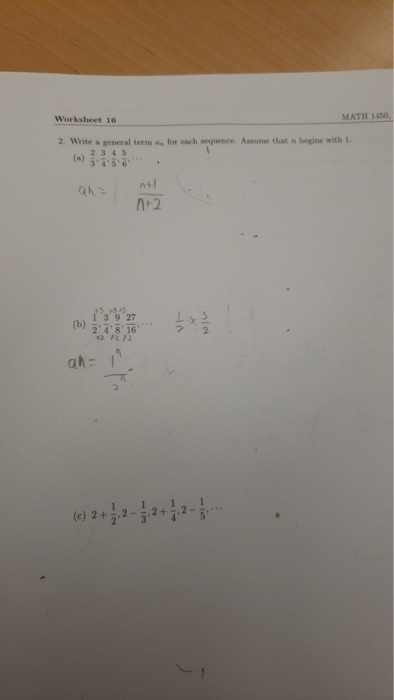 Worksheet 16
MATH 1450,
2. Write a general term aₙ for each sequence. Assume that n begins with 1.
(a) 2/3, 3/4, 4/5, 5/6, ...
an = n+1/n+2
×3 ×3 ×3
(b) 1/2, 3/4, 9/8, 27/16, ... 1/2 × 3/2
×2 ×2 ×2
an = 1ⁿ/2ⁿ
(c) 2 + 1/2, 2 − 1/3, 2 + 1/4, 2 − 1/5, ...